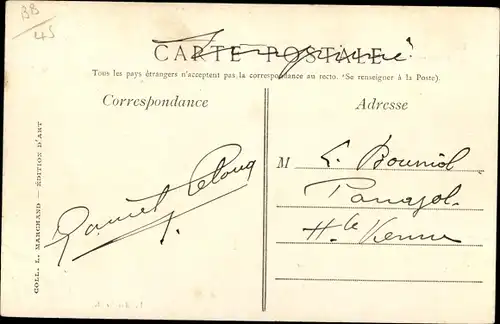 BB
45
CARTE POSTALE
Tous les pays étrangers n'acceptent pas la correspondance au recto. (Se renseigner à la Poste).
Correspondance
Adresse
COLL. L. MARCHAND — ÉDITION D'ART
M
Panazol
Hte Vienne